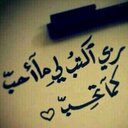 ربي اكتب لي ما أحبّ
كما تحبّ